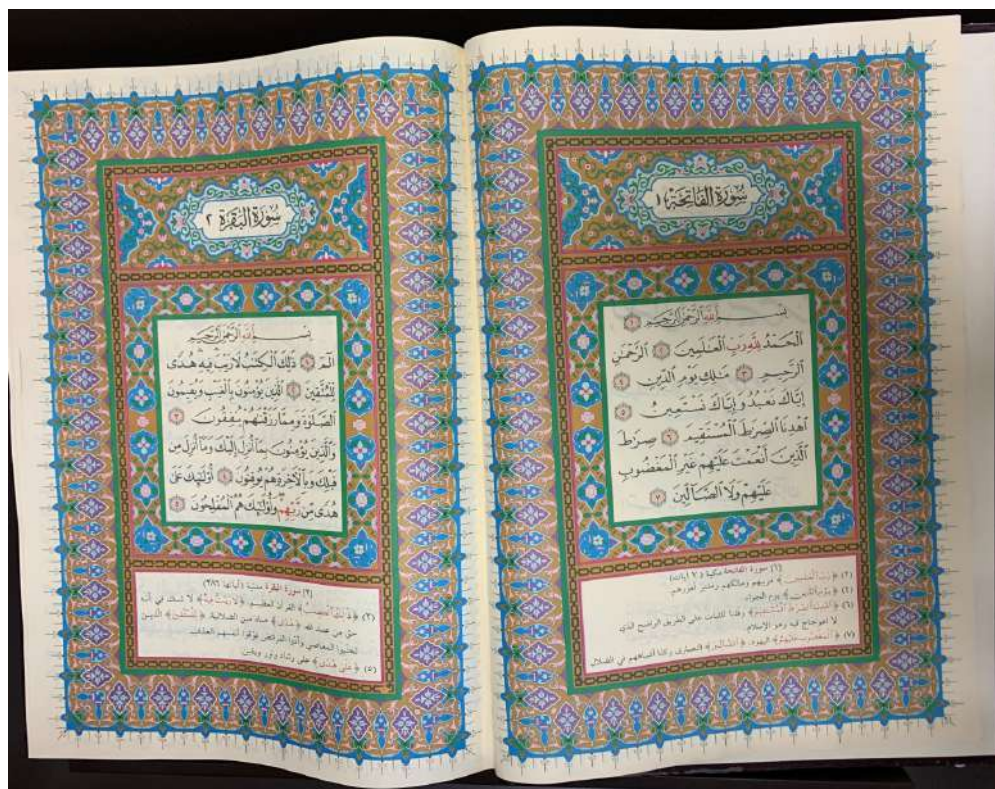 سُورَةُ الفَاتِحَةِ ١
بِسْمِ ٱللَّهِ ٱلرَّحْمَٰنِ ٱلرَّحِيمِ ١
ٱلْحَمْدُ لِلَّهِ رَبِّ ٱلْعَٰلَمِينَ ٢ ٱلرَّحْمَٰنِ
ٱلرَّحِيمِ ٣ مَٰلِكِ يَوْمِ ٱلدِّينِ ٤
إِيَّاكَ نَعْبُدُ وَإِيَّاكَ نَسْتَعِينُ ٥
ٱهْدِنَا ٱلصِّرَٰطَ ٱلْمُسْتَقِيمَ ٦ صِرَٰطَ
ٱلَّذِينَ أَنْعَمْتَ عَلَيْهِمْ غَيْرِ ٱلْمَغْضُوبِ
عَلَيْهِمْ وَلَا ٱلضَّآلِّينَ ٧
(١) سورة الفاتحة مكية (٧ آياتها)
(٢) ﴿رَبِّ ٱلْعَٰلَمِينَ﴾ مربيهم ومالكهم ومدبر أمورهم.
(٤) ﴿يَوْمِ ٱلدِّينِ﴾ يوم الجزاء.
(٦) ﴿ٱهْدِنَا ٱلصِّرَٰطَ ٱلْمُسْتَقِيمَ﴾ وفقنا للثبات على الطريق الواضح الذي
لا اعوجاج فيه وهو الإسلام.
(٧) ﴿ٱلْمَغْضُوبِ عَلَيْهِمْ﴾ اليهود، ﴿ٱلضَّآلِّينَ﴾ النصارى وكذا أشباههم في الضلال
سُورَةُ البَقَرَةِ ٢
بِسْمِ ٱللَّهِ ٱلرَّحْمَٰنِ ٱلرَّحِيمِ
الٓمٓ ١ ذَٰلِكَ ٱلْكِتَٰبُ لَا رَيْبَ فِيهِ هُدًى
لِّلْمُتَّقِينَ ٢ ٱلَّذِينَ يُؤْمِنُونَ بِٱلْغَيْبِ وَيُقِيمُونَ
ٱلصَّلَوٰةَ وَمِمَّا رَزَقْنَٰهُمْ يُنفِقُونَ ٣
وَٱلَّذِينَ يُؤْمِنُونَ بِمَآ أُنزِلَ إِلَيْكَ وَمَآ أُنزِلَ مِن
قَبْلِكَ وَبِٱلْءَاخِرَةِ هُمْ يُوقِنُونَ ٤ أُو۟لَٰٓئِكَ عَلَىٰ
هُدًى مِّن رَّبِّهِمْ وَأُو۟لَٰٓئِكَ هُمُ ٱلْمُفْلِحُونَ ٥
(٢) سورة البقرة مدنية (آياتها ٢٨٦)
(٢) ﴿ذَٰلِكَ ٱلْكِتَٰبُ﴾ القرآن العظيم. ﴿لَا رَيْبَ فِيهِ﴾ لا شك في أنه
حق من عند الله ﴿هُدًى﴾ هاد من الضلالة. ﴿لِّلْمُتَّقِينَ﴾ الذين
تجنبوا المعاصي وأدوا الفرائض فوقوا أنفسهم العذاب.
(٥) ﴿عَلَىٰ هُدًى﴾ على رشاد ونور ويقين.